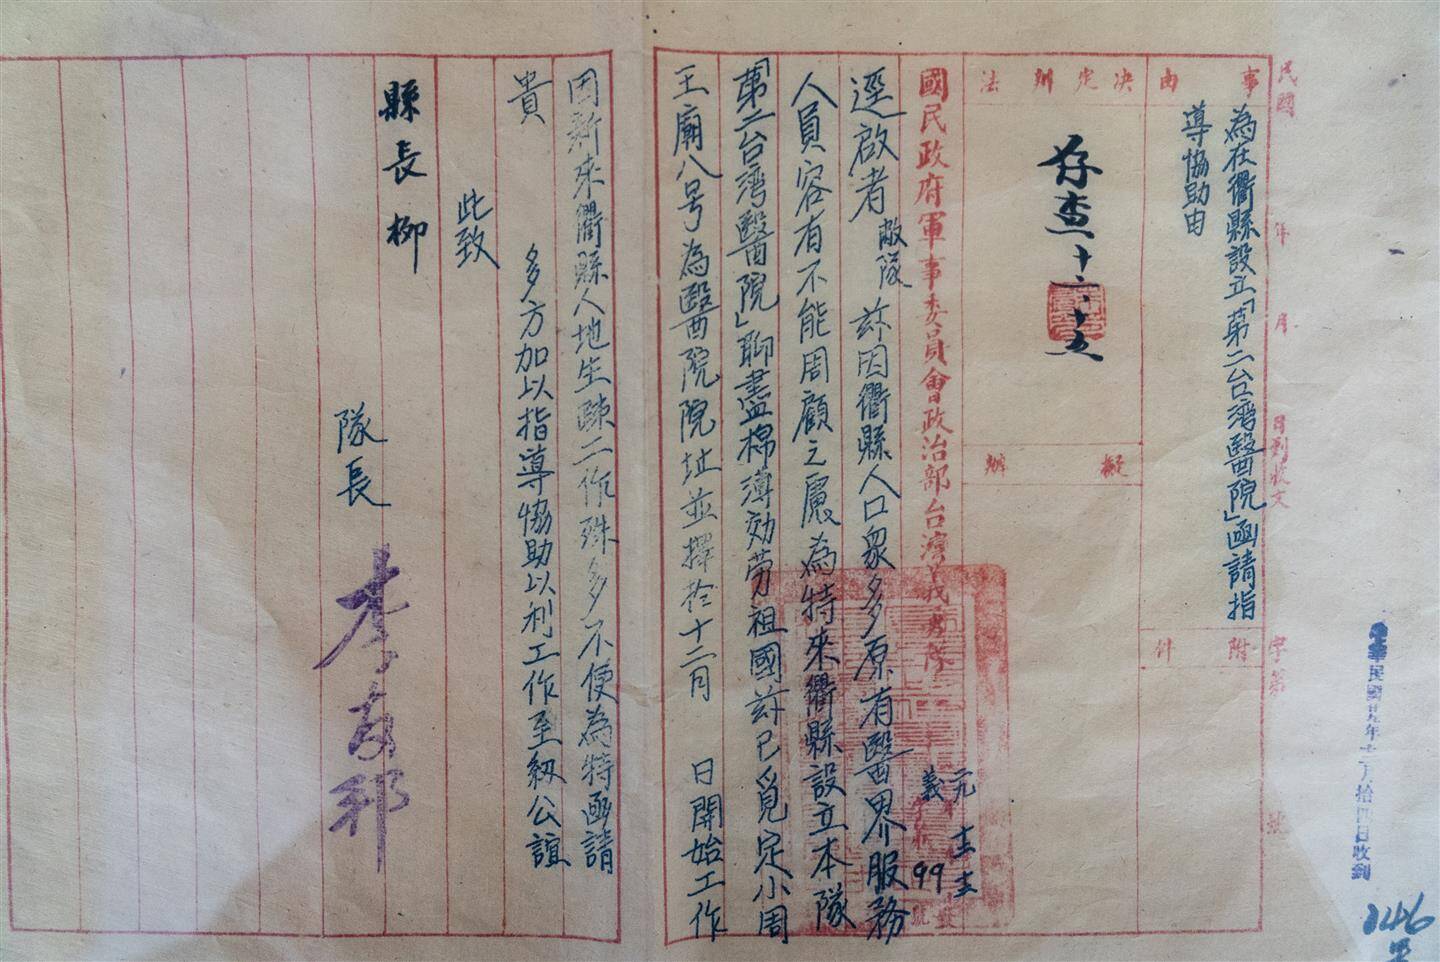 民國 年 月 日到收文 字第 號
事由
為在衢縣設立「第二台湾醫院」函請指
導協助由
附件
决定辦法
存查十二、十五
擬辦
國民政府軍事委員會政治部台灣義勇隊
義字第 99 號
逕啟者敝隊玆因衢縣人口衆多原有醫界服務
人員容有不能周顧之慮為特來衢縣設立本隊
「第二台湾醫院」聊盡棉薄効劳祖國玆已覓定小周
王廟八号為醫院院址並擇於十二月 日開始工作
因新來衢縣人地生疎工作殊多不便為特函請
貴 多方加以指導協助以利工作至紉公誼
此致
縣長柳
隊長 李友邦
中華民國廿九年十二月拾四日收到